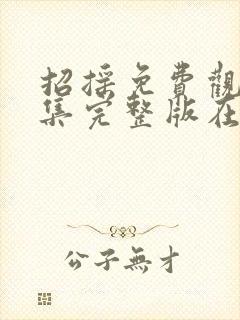 招採免費觀
集完整版在
公子無才